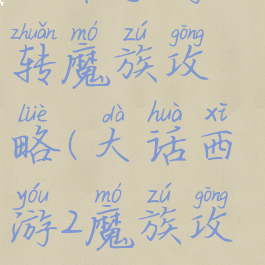 zhuǎn mó zú gōng
转魔族攻
lüè dà huà xī
略(大话西
yóu mó zú gōng
游2魔族攻